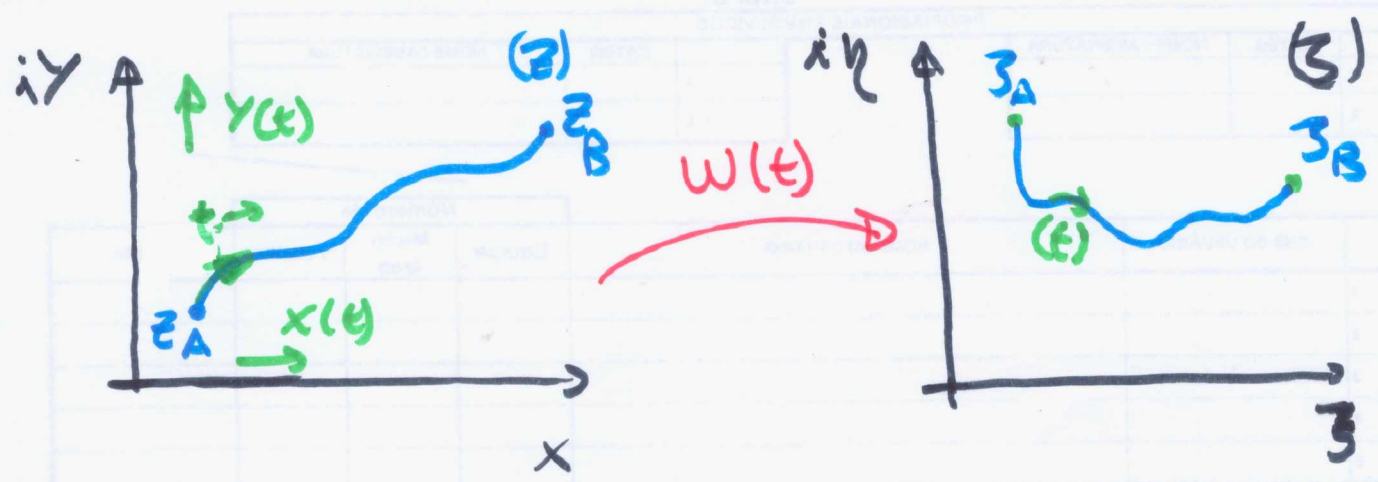 iY
Y(t)
(Z)
Z_B
t
Z_A
X(t)
x
W(t)
iη
ζ_A
(ζ)
ζ_B
(t)
ξ